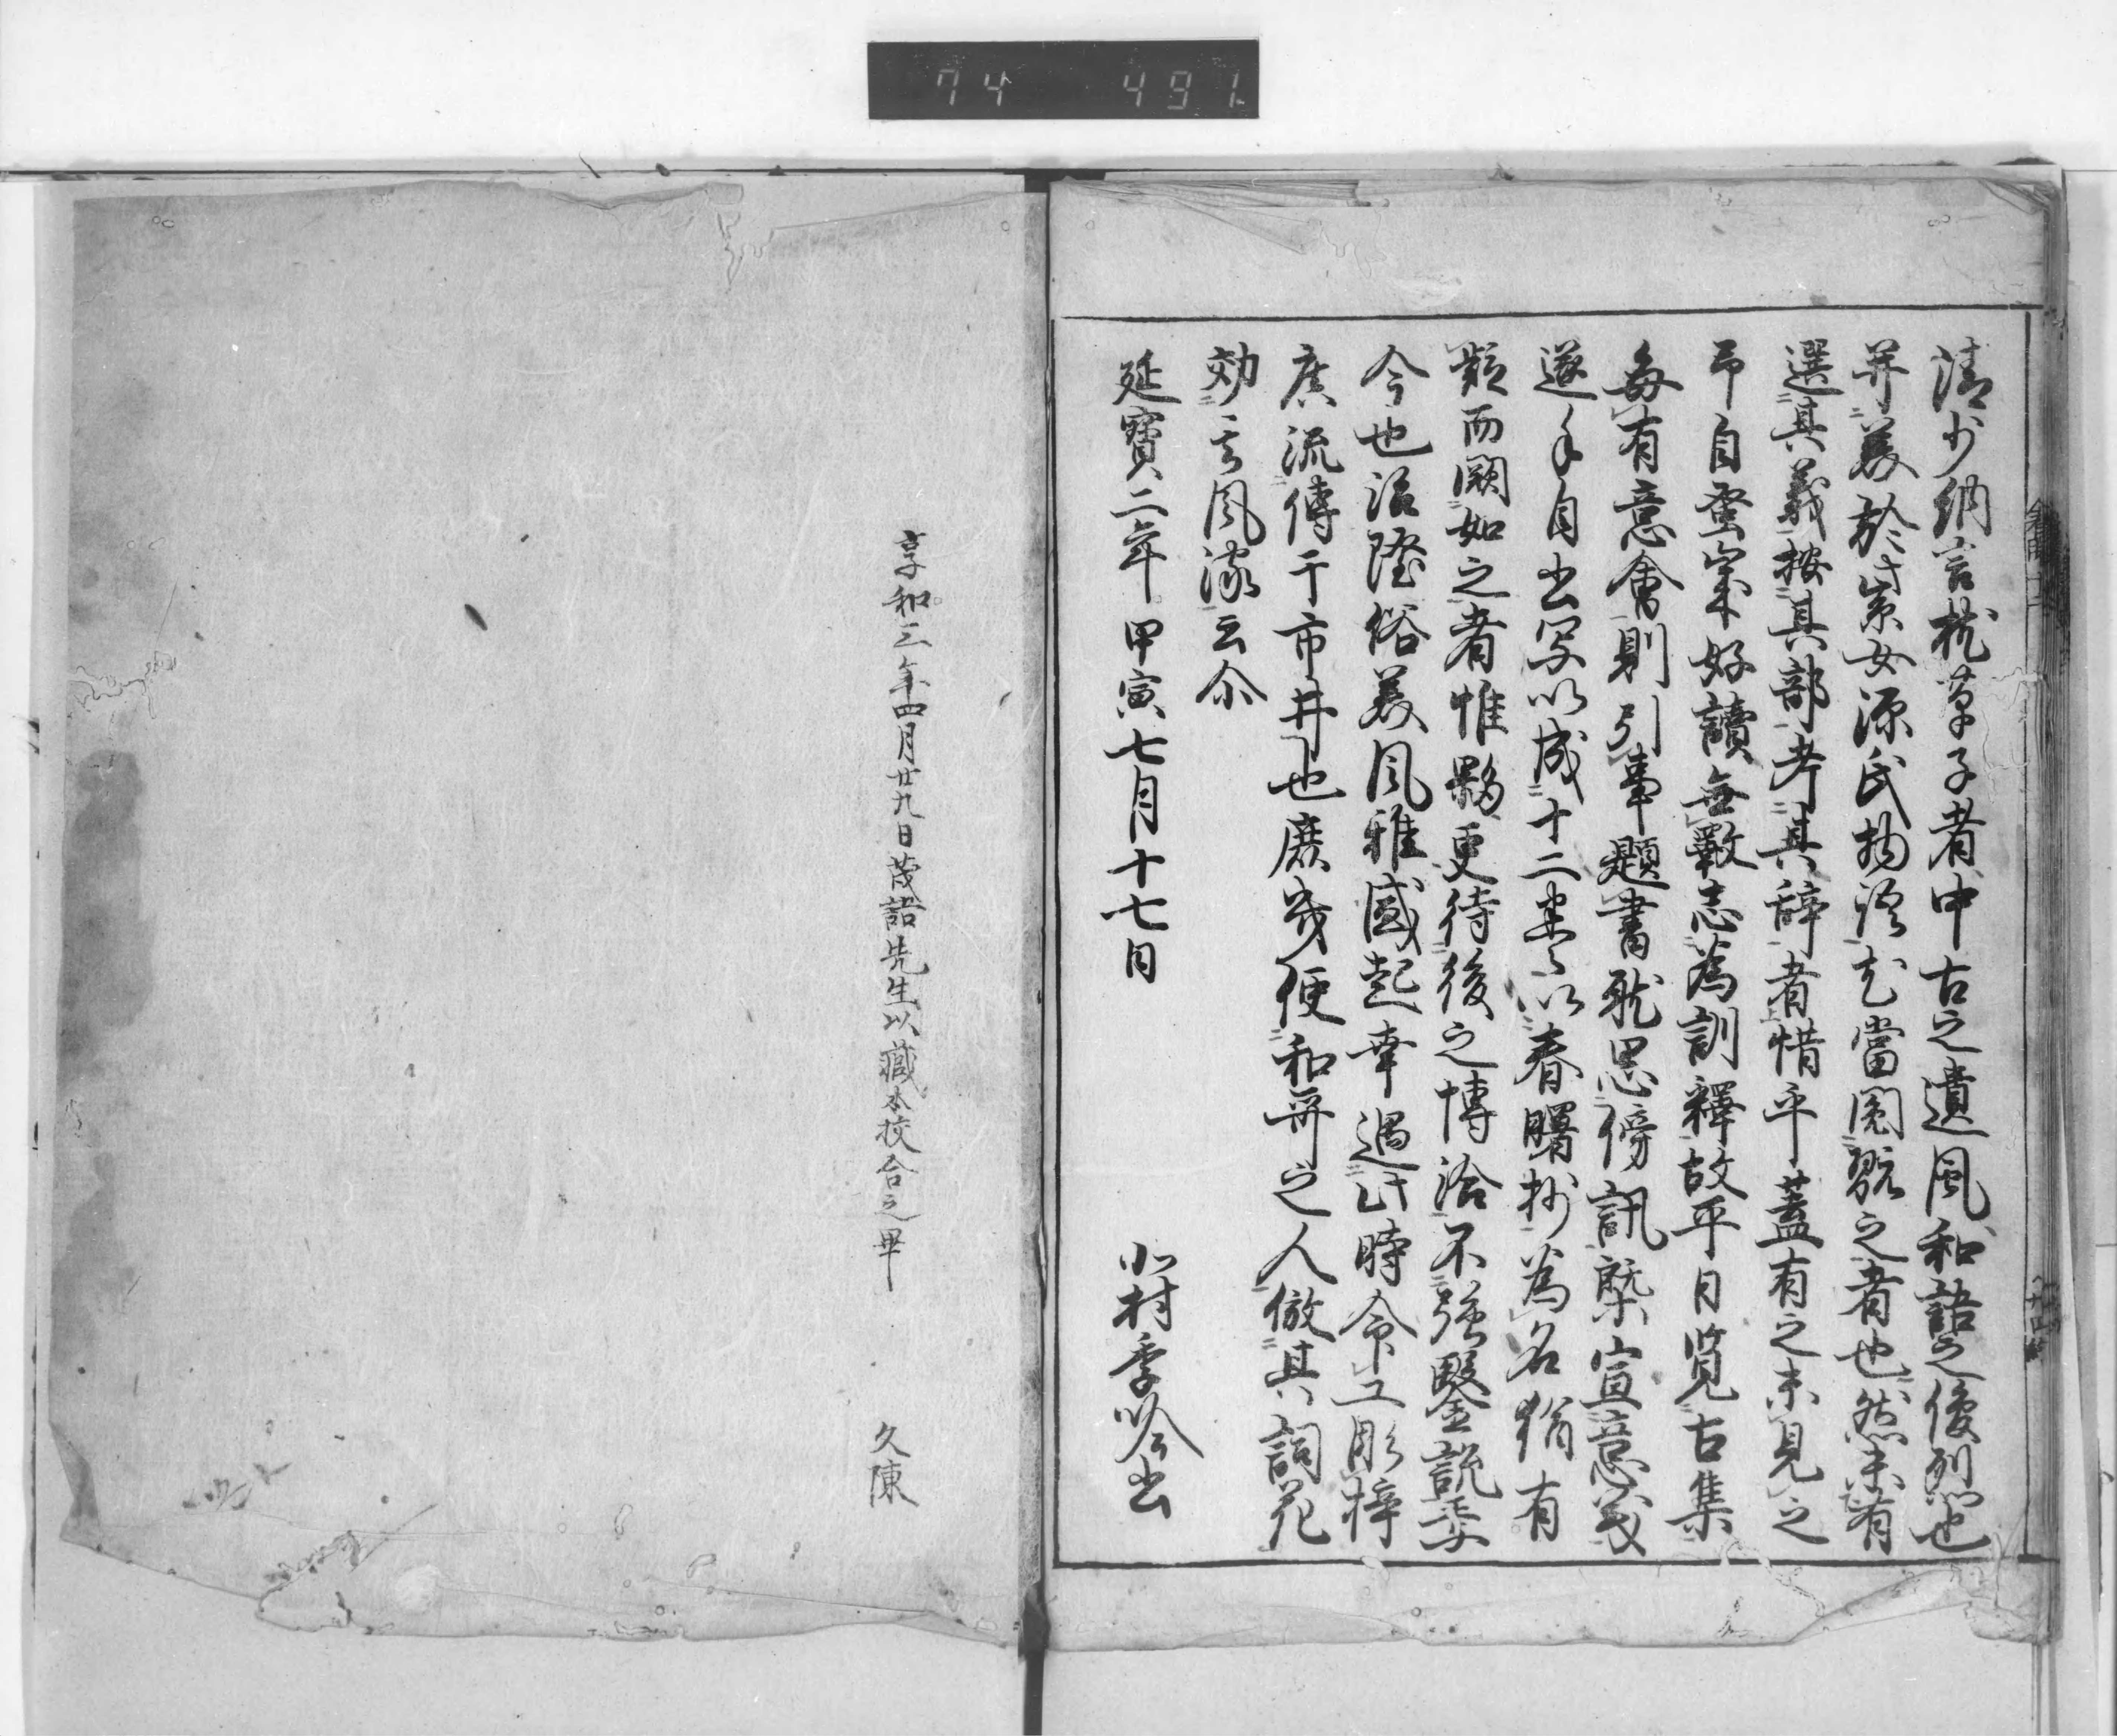 74 491
清少納言枕草子者中古之遺風和語之俊烈也
并義於紫女源氏物語尤當閲翫之者也然未有
選其義按其部考其辞者惜乎蓋有之未見之
予自蚤歳好讀無斁志為訓釋故平日覧古集
毎有意會則引事題書就思傍訊槩宣意義
遂手自書写以成十二巻以春曙抄為名猶有
疑而闕如之者惟夥更待後之博洽不強鑿説矣
今也治隆俗美風雅盛起幸遇此時命工彫梓
庶流傳于市井也庶幾便和哥之人倣其詞花
効言風流云尒
延寶二年甲寅七月十七日
北村季吟書
享和三年四月廿九日茂語先生以蔵本挍合之畢
久陳